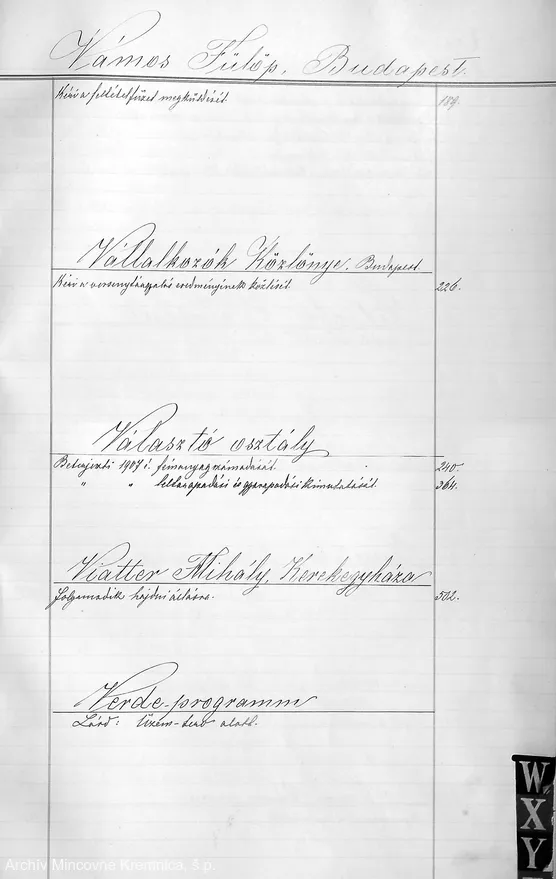 Vámos Fülöp, Budapest.
Kéri a feltétel füzet megküldését. 189.
Vállalkozók Közlönye, Budapest
Kéri a versenytárgyalás eredményének közlését. 226.
Választó osztály
Beterjeszti 1907 é. fémanyag számadását. 240.
" " leltárapadási és gyarapodási kimutatását. 364.
Viatter Mihály, Kerekegyháza
folyamodik hajdúi állásra. 502.
Verde-programm
Lásd: Üzem-terv alatt.
W
X
Y
Archív Mincovne Kremnica, š.p.